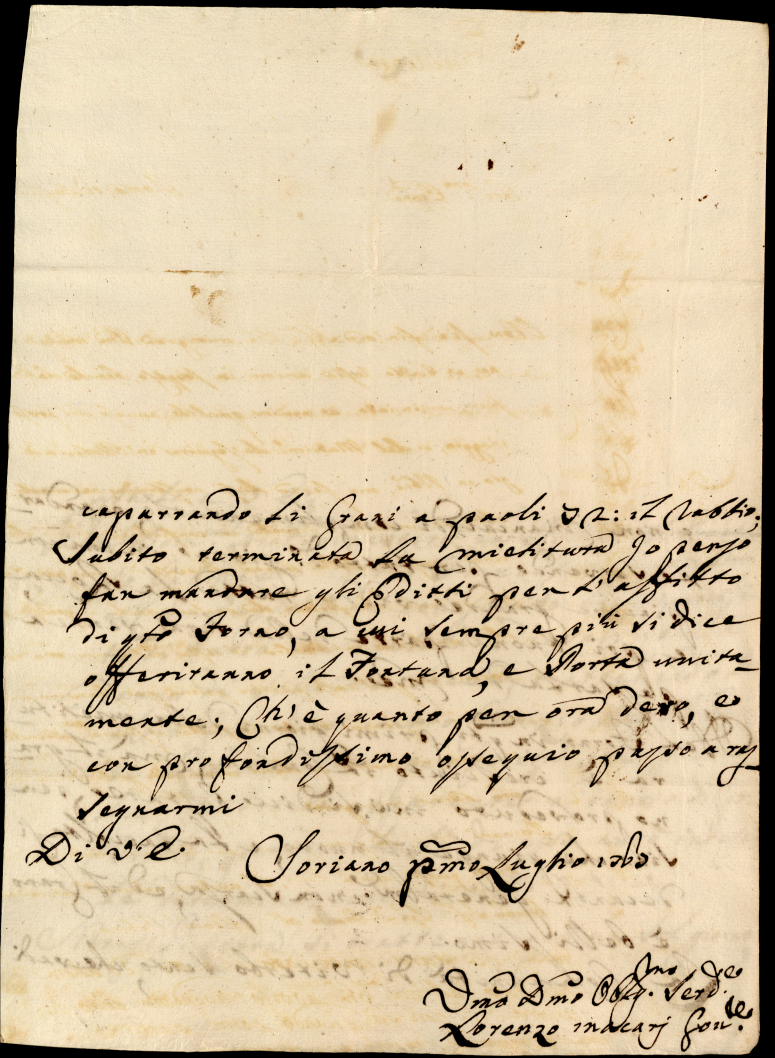 caparrando li Grani a paoli 32: il Rabbio;
Subito terminata la mietitura Io penso
far mandare gli Editti per l'affitto
di qto Forno, a cui sempre più si dice
offeriranno il Fortuna, e Porta unita-
mente; Ch'è quanto per ora devo, e
con profondissimo ossequio passo a ras-
segnarmi
Di V. E. Soriano pmo Luglio 1763
Dmo Dmo Obligmo Serde
Lorenzo Macarj Gove.